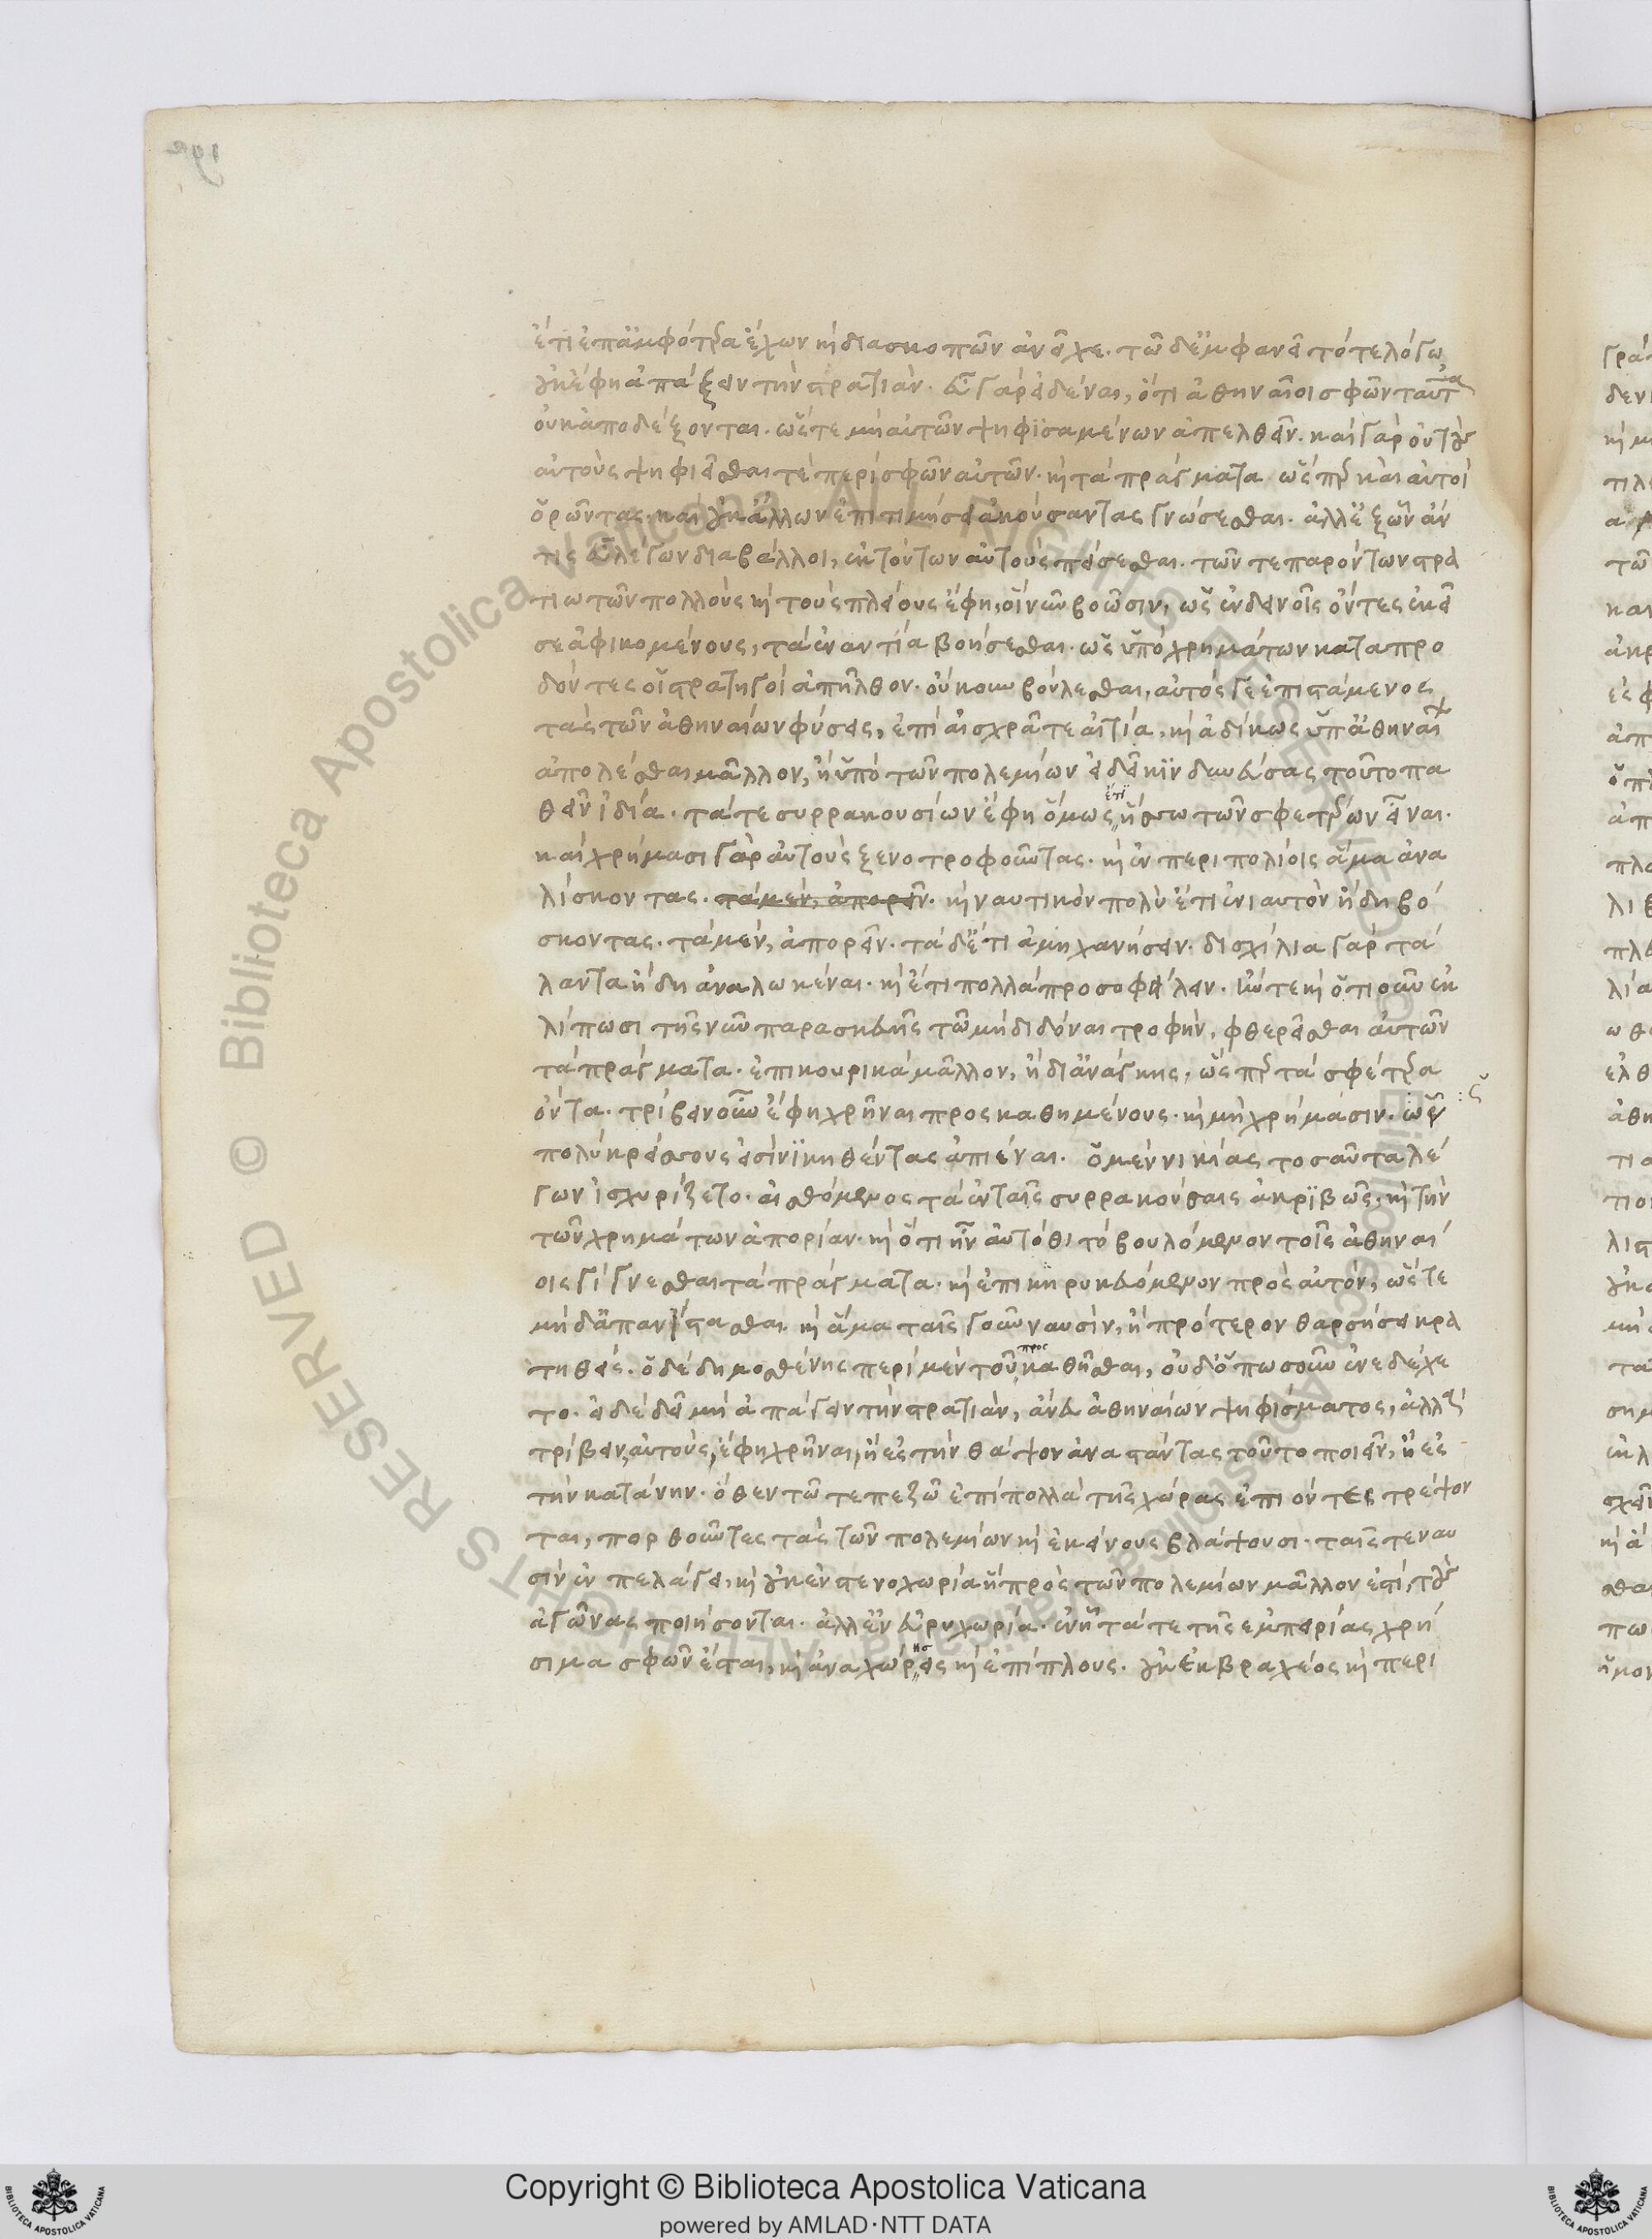 ἔτι ἐπ' ἀμφότερα ἔχων καὶ διασκοπῶν ἀνεῖχε. τῶ δ' ἐμφανεῖ τότε λόγω
οὐκ ἔφη ἀπάξειν τὴν στρατιάν. εὖ γὰρ εἰδέναι, ὅτι ἀθηναῖοι σφῶν ταῦτα
οὐκ ἀποδέξονται. ὥστε μὴ αὐτῶν ψηφισαμένων ἀπελθεῖν. καὶ γὰρ οὐ τοὺς
αὐτοὺς ψηφιεῖσθαι τὲ περὶ σφῶν αὐτῶν. καὶ τὰ πράγματα ὥσπερ καὶ αὐτοὶ
ὁρῶντας. καὶ οὐκ ἄλλων ἐπιτιμήσει ἀκούσαντας γνώσεσθαι. ἀλλ' ἐξ ὧν ἄν
τις εὖ λέγων διαβάλλοι, ἐκ τούτων αὐτοὺς πείσεσθαι. τῶν τε παρόντων στρα
τιωτῶν πολλοὺς καὶ τοὺς πλείους ἔφη, οἳ νῦν βοῶσιν, ὡς ἐν δεινοῖς ὄντες ἐκεῖ
σε ἀφικομένους, τὰ ἐναντία βοήσεσθαι. ὡς ὑπὸ χρημάτων καταπρο
δόντες οἱ στρατηγοὶ ἀπῆλθον. οὔκουν βούλεσθαι, αὐτός γε ἐπιστάμενος
τὰς τῶν ἀθηναίων φύσεις, ἐπὶ αἰσχρᾶ τε αἰτία, καὶ ἀδίκως ὑπ' ἀθηναίων
ἀπολέσθαι μᾶλλον, ἢ ὑπὸ τῶν πολεμίων εἰ δεῖ κινδυνεύσας τοῦτο πα
θεῖν ἰδία. τά τε συρρακουσίων ἔφη ὅμως ἔτι ἥσσω τῶν σφετέρων εἶναι.
καὶ χρήμασι γὰρ αὐτοὺς ξενοτροφοῦντας. καὶ ἐν περιπολίοις ἅμα ἀνα
λίσκοντας. τὰ μὲν, ἀπορεῖν. καὶ ναυτικὸν πολὺ ἔτι ἐνιαυτὸν ἤδη βό
σκοντας. τὰ μὲν, ἀπορεῖν. τὰ δ' ἔτι ἀμηχανήσειν. δισχίλια γὰρ τά
λαντα ἤδη ἀναλωκέναι. καὶ ἔτι πολλὰ προσοφείλειν. ἤν τε καὶ ὁτιοῦν ἐκ
λίπωσι τῆς νῦν παρασκευῆς τῶ μὴ διδόναι τροφὴν, φθερεῖσθαι αὐτῶν
τὰ πράγματα. ἐπικουρικὰ μᾶλλον, ἢ δι' ἀνάγκης, ὥσπερ τὰ σφέτερα
ὄντα. τρίβειν οὖν ἔφη χρῆναι προσκαθημένους. καὶ μὴ χρήμασιν. ὧν
πολὺ κρείσσους εἰσὶ νικηθέντας ἀπιέναι. ὁ μὲν νικίας τοσαῦτα λέ
γων ἰσχυρίζετο. αἰσθόμενος τὰ ἐν ταῖς συρρακούσαις ἀκριβῶς. καὶ τὴν
τῶν χρημάτων ἀπορίαν. καὶ ὅτι ἦν αὐτόθι τὸ βουλόμενον τοῖς ἀθηναί
οις γίγνεσθαι τὰ πράγματα. καὶ ἐπικηρυκευόμενον πρὸς αὐτὸν, ὥστε
μὴ δ' ἀπανίστασθαι. καὶ ἅμα ταῖς γοῦν ναυσὶν, ἢ πρότερον θαρσήσει κρα
τηθείς. ὁ δὲ δημοσθένης περὶ μὲν τοῦ προσκαθῆσθαι, οὐδ' ὁπωσοῦν ἐνεδέχε
το. εἰ δὲ δεῖ μὴ ἀπάγειν τὴν στρατιὰν, ἄνευ ἀθηναίων ψηφίσματος, ἀλλὰ
τρίβειν αὐτοὺς, ἔφη χρῆναι, ἢ ἐς τὴν θάψον ἀναστάντας τοῦτο ποιεῖν, ἢ ἐς
τὴν κατάνην. ὅθεν τῶ τε πεζῶ ἐπὶ πολλὰ τῆς χώρας ἐπιόντες τρέψον
ται, πορθοῦντες τὰς τῶν πολεμίων καὶ ἐκείνους βλάψουσι. ταῖς τε ναυ
σὶν ἐν πελάγει, καὶ οὐκ ἐν στενοχωρία ἣ πρὸς τῶν πολεμίων μᾶλλον ἐστὶ, τοὺς
ἀγῶνας ποιήσονται. ἀλλ' ἐν εὐρυχωρία. ἐν ἧ τά τε τῆς ἐμπειρίας χρή
σιμα σφῶν ἔσται, καὶ ἀναχωρήσεις καὶ ἐπίπλους. οὐκ ἐκ βραχέος καὶ περι
Copyright © Biblioteca Apostolica Vaticana
powered by AMLAD·NTT DATA